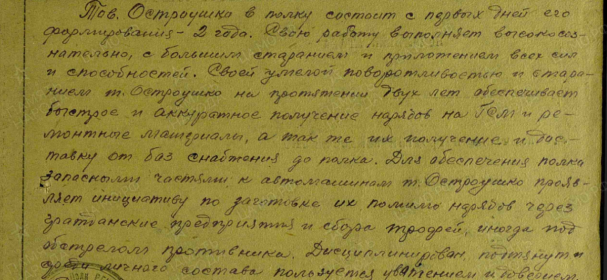 Тов. Остроушко в полку состоит с первых дней его
формирования - 2 года. Свою работу выполняет высокосоз-
нательно, с большим старанием и приложением всех сил
и способностей. Своей умелой поворотливостью и стара-
нием т. Остроушко на протяжении двух лет обеспечивает
быстрое и аккуратное получение нарядов на ГСМ и ре-
монтные материалы, а так же их получение и дос-
тавку от баз снабжения до полка. Для обеспечения полка
запасными частями к автомашинам т. Остроушко прояв-
ляет инициативу по заготовке их помимо нарядов через
гражданские предприятия и сбора трофей, иногда под
обстрелом противника. Дисциплинирован, подтянут и
среди личного состава пользуется уважением и доверием.